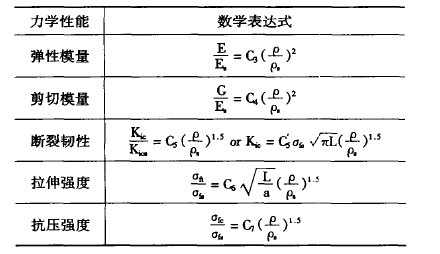 力学性能 数学表达式
弹性模量 E/Eₛ = C₃(ρ/ρₛ)²
剪切模量 G/Eₛ = C₄(ρ/ρₛ)²
断裂韧性 K_ic/K_ics = C₅(ρ/ρₛ)^1.5 or K_ic = C₅′σ_fs √πL(ρ/ρₛ)^1.5
拉伸强度 σ_ft/σ_fs = C₆√(L/a)(ρ/ρₛ)^1.5
抗压强度 σ_fc/σ_fs = C₇(ρ/ρₛ)^1.5